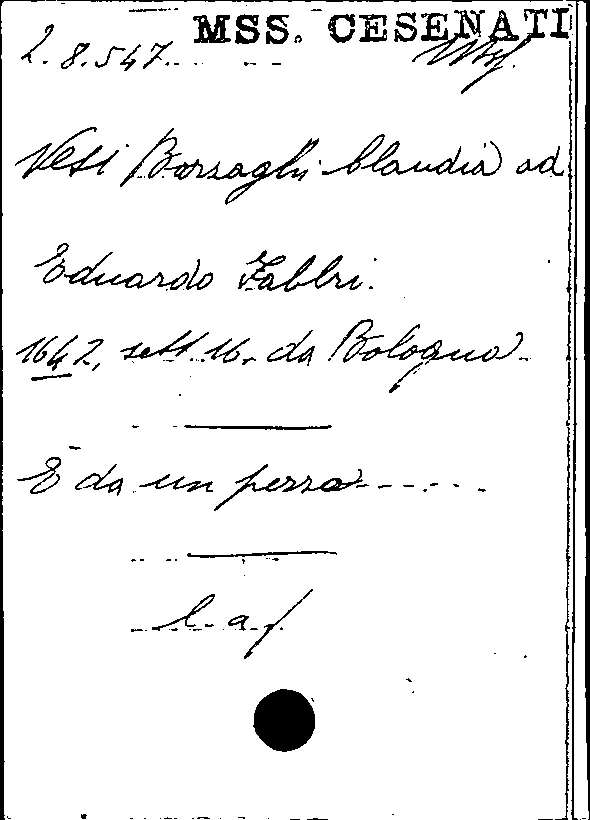 MSS. CESENATI
2.8.547.
Vesi Borsaghi Claudia ad
Eduardo Fabbri.
1642, sett. 16. da Bologna.
È da un pezzo